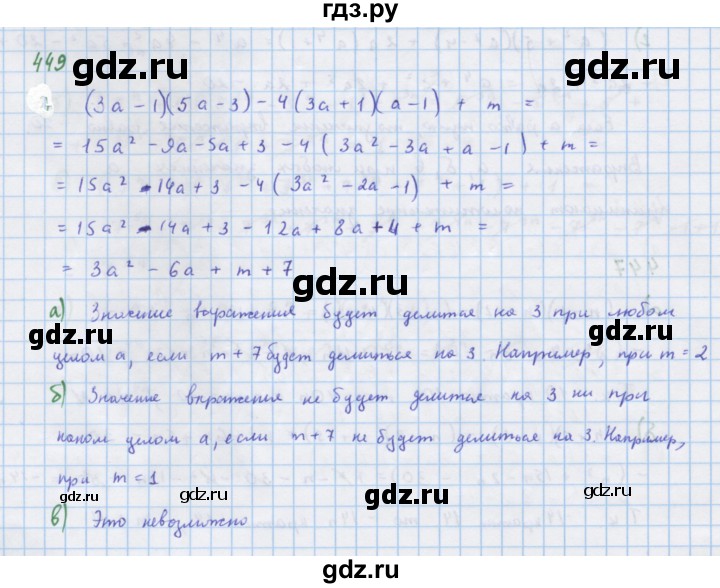 гдз.ру
449
gdz.ru gdz.ru
(3a - 1)(5a - 3) - 4(3a + 1)(a - 1) + m =
= 15a² - 9a - 5a + 3 - 4(3a² - 3a + a - 1) + m =
gdz.ru
= 15a² - 14a + 3 - 4(3a² - 2a - 1) + m =
= 15a² - 14a + 3 - 12a + 8a + 4 + m =
gdz.ru gdz.ru
= 3a² - 6a + m + 7
gdz.ru
а) Значение выражения будет делится на 3 при любом
gdz.ru gdz.ru
целом a, если m + 7 будет делиться на 3. Например, при m = 2
gdz.ru
б) Значение выражения не будет делится на 3 ни при
каком целом a, если m + 7 не будет делиться на 3. Например,
gdz.ru gdz.ru
при m = 1
gdz.ru gdz.ru gdz.ru
в) Это невозможно
gdz.ru